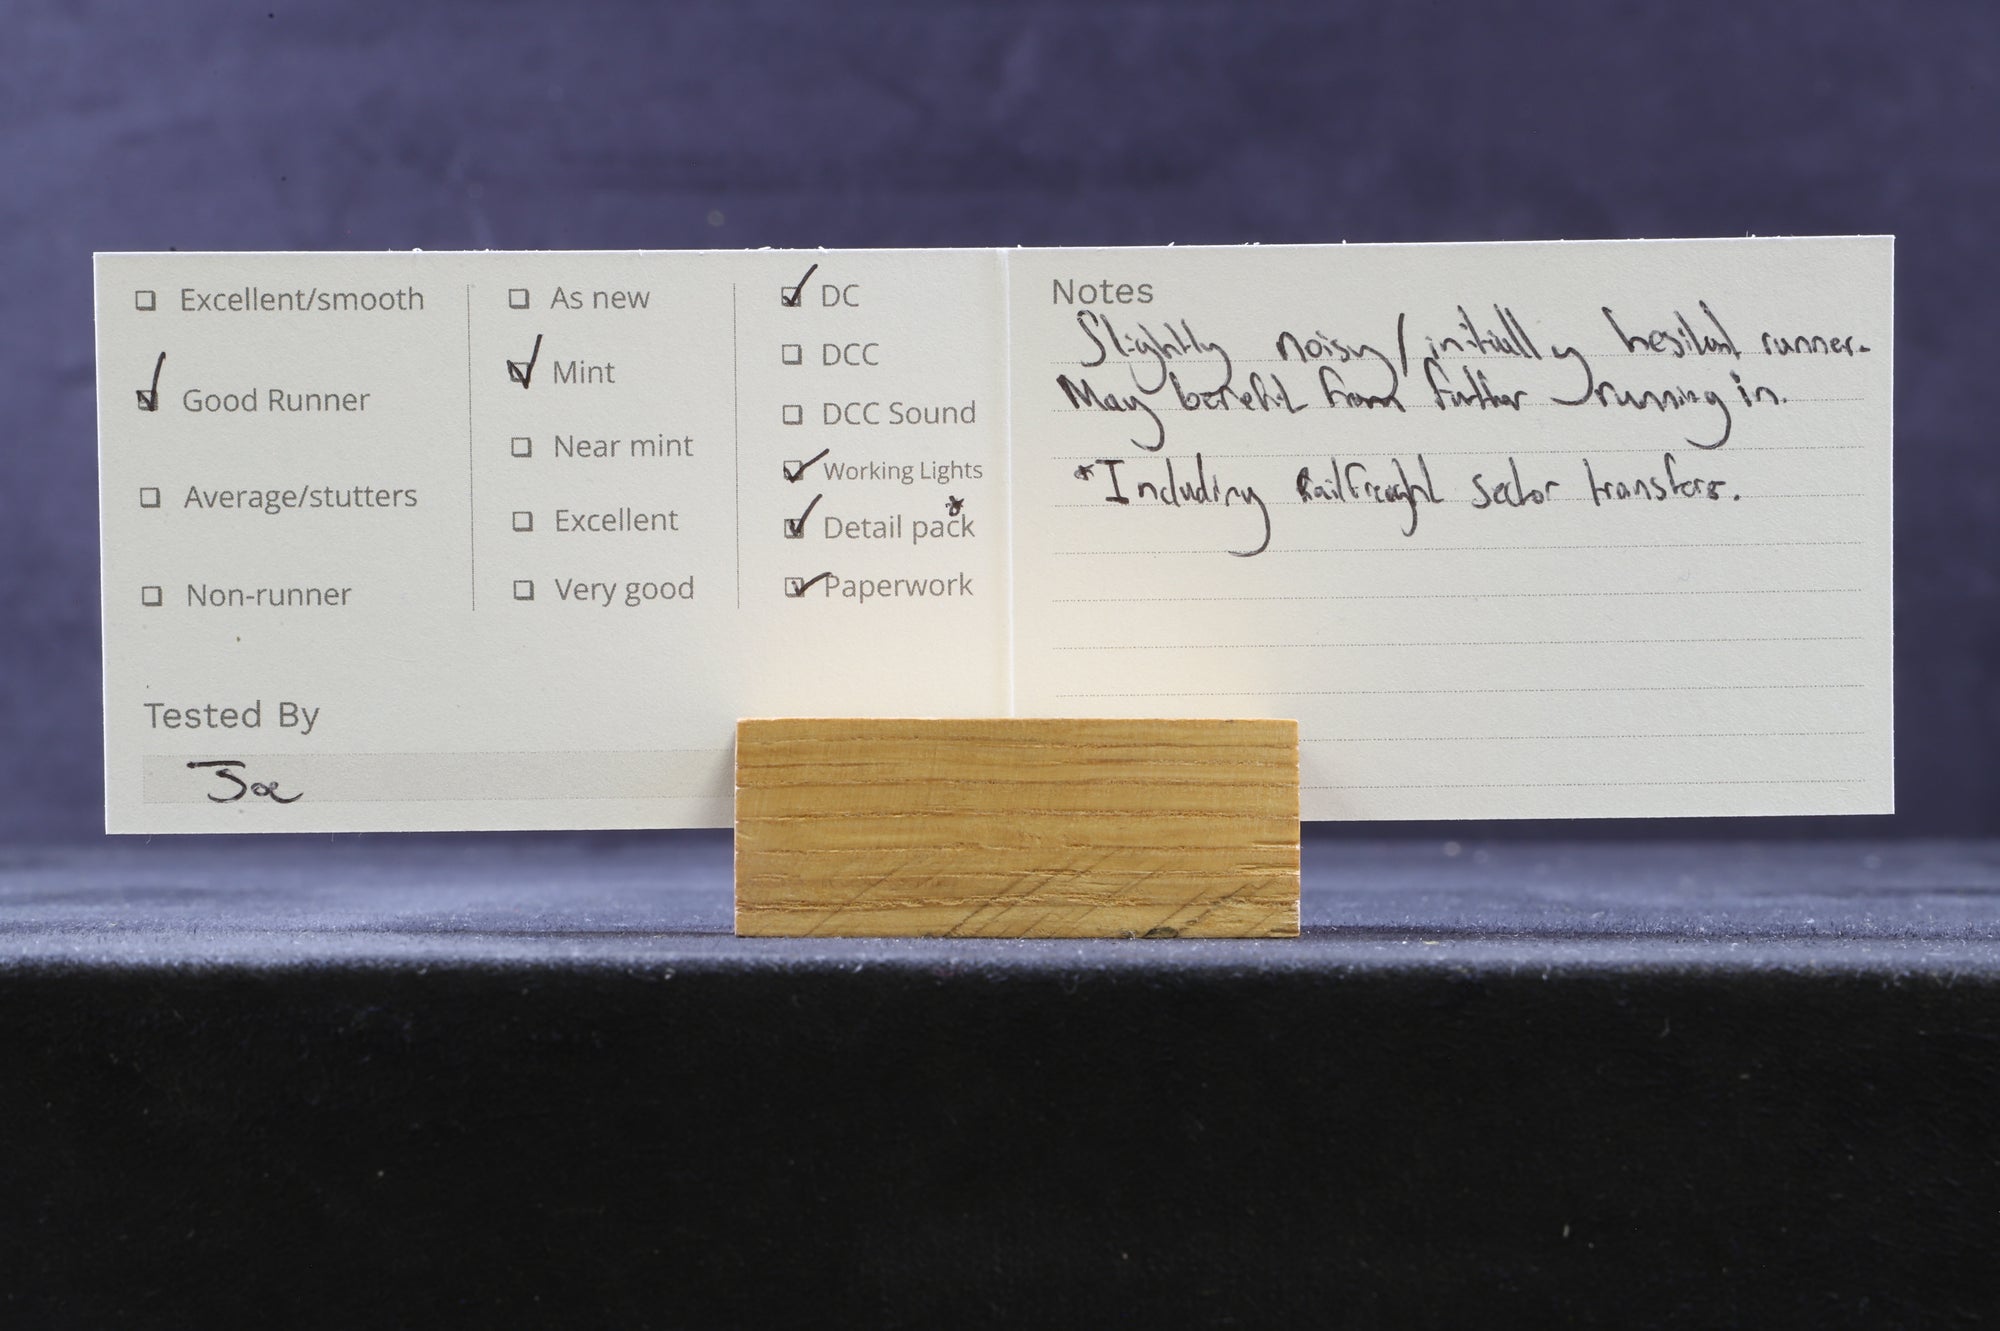 Excellent/smooth
Good Runner
Average/stutters
Non-runner
As new
Mint
Near mint
Excellent
Very good
DC
DCC
DCC Sound
Working Lights
Detail pack*
Paperwork
Tested By
Joe
Notes
Slightly noisy/initially hesitant runner.
May benefit from further running in.
*Including Railfreight sector transfers.